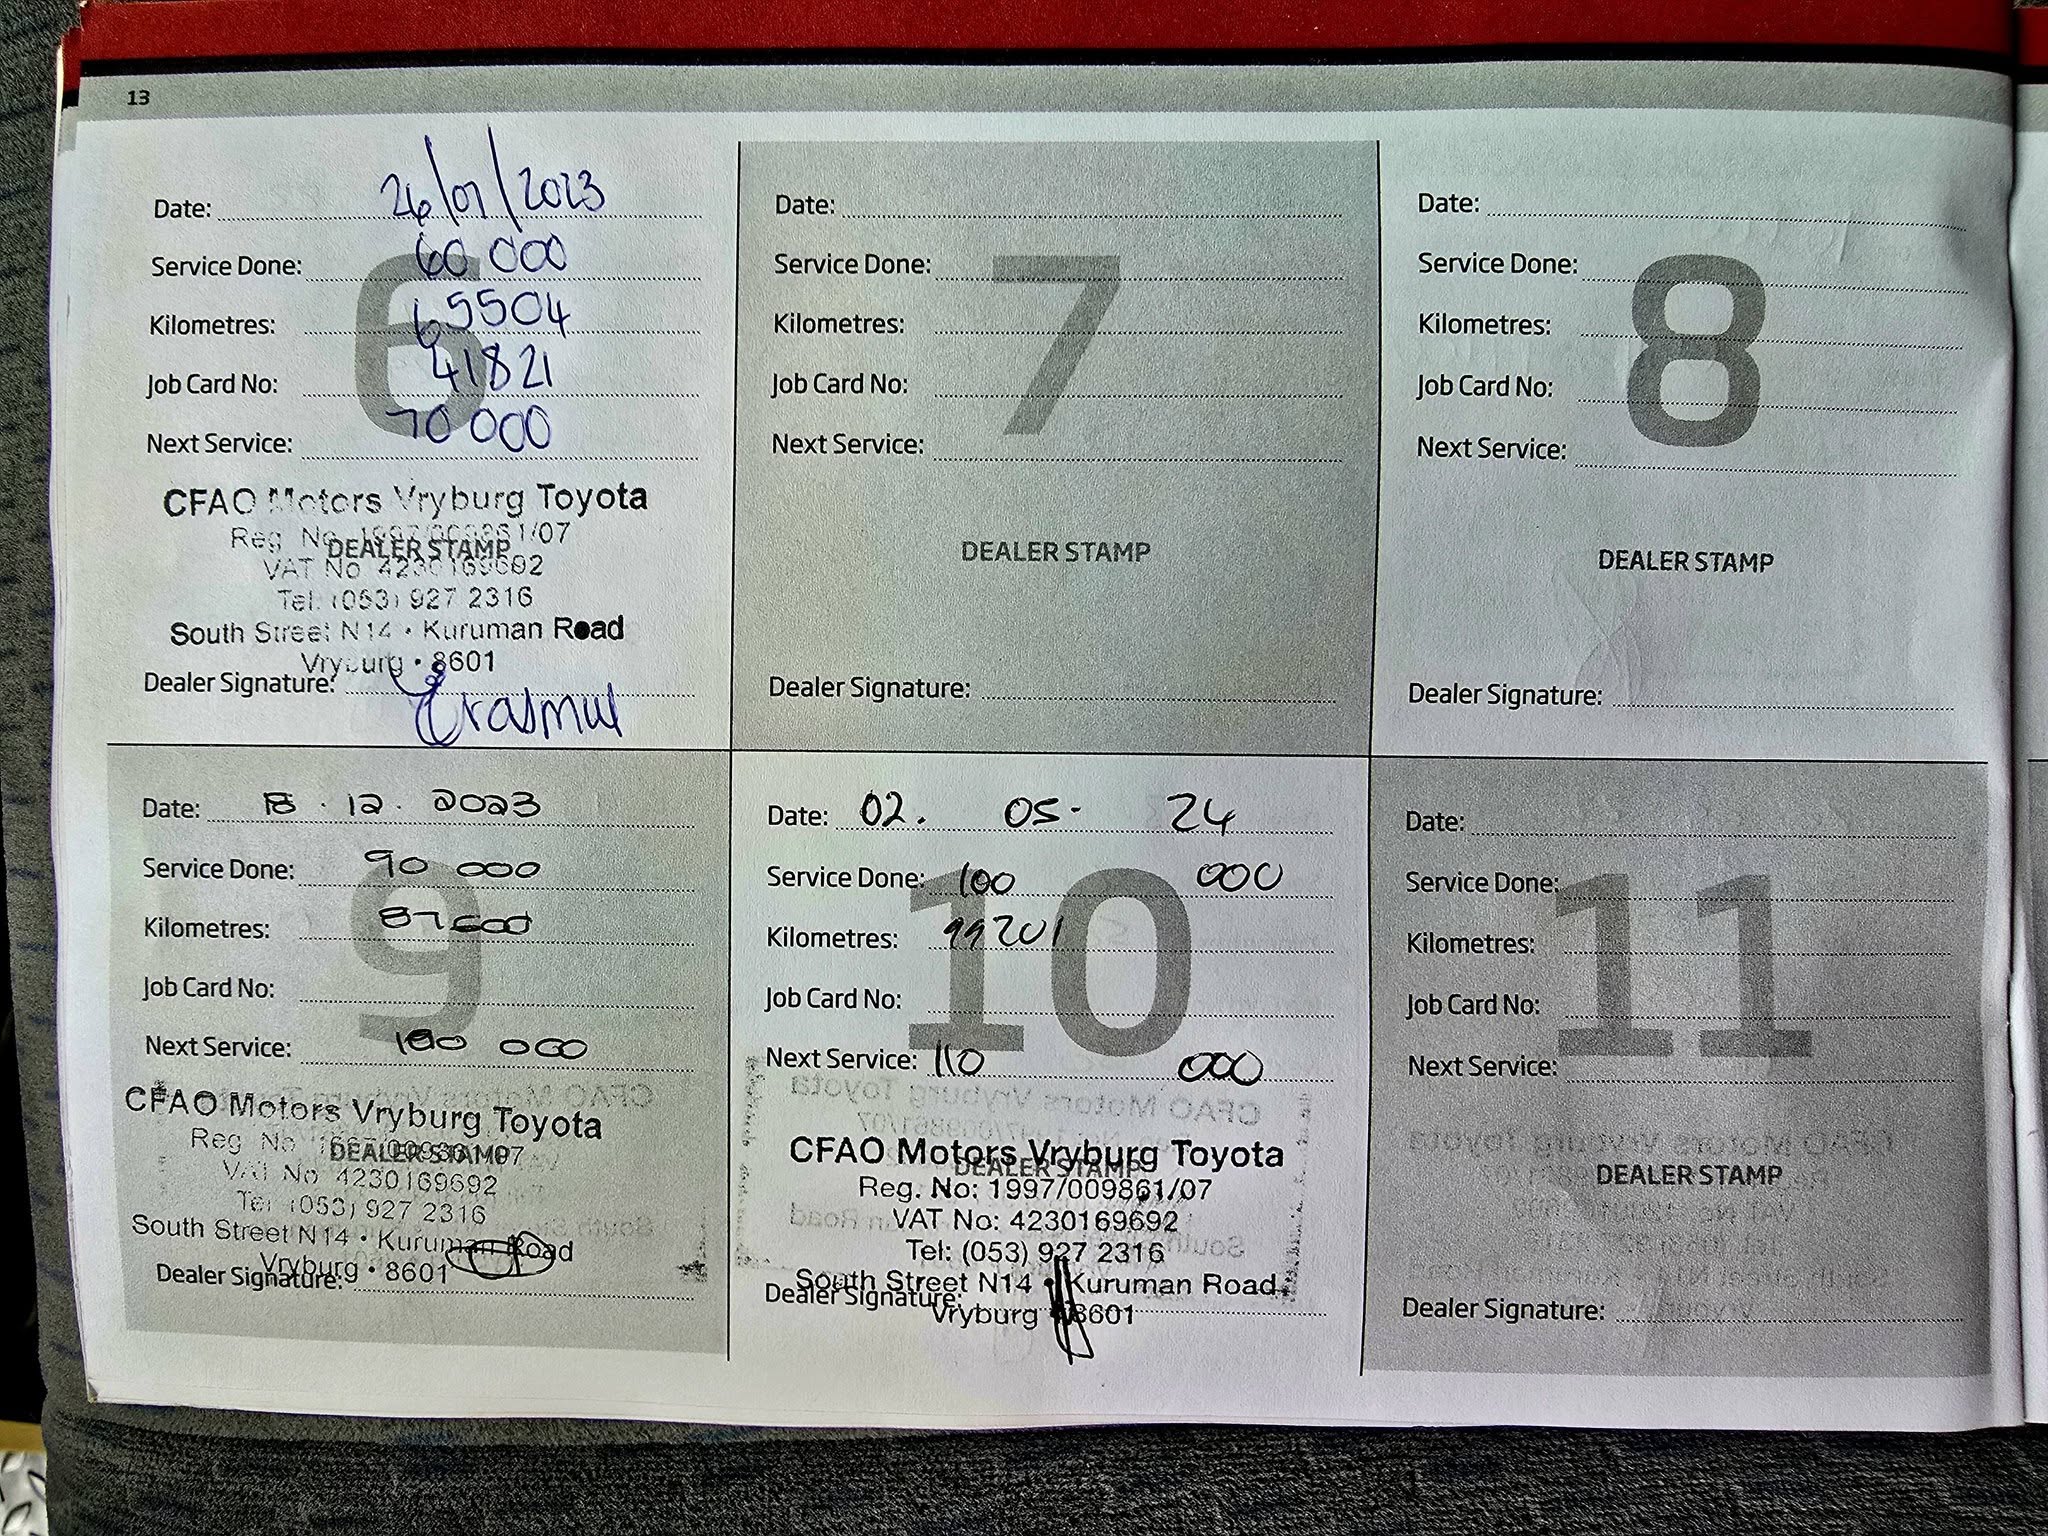 13
Date: 26/01/2023
Service Done: 60 000
Kilometres: 65504
Job Card No: 41821
Next Service: 70 000
6
CFAO Motors Vryburg Toyota
Reg. No 1997/009861/07
DEALER STAMP
VAT No 4230169692
Tel: (053) 927 2316
South Street N14 • Kuruman Road
Vryburg • 8601
Dealer Signature: Erasmus
Date:
Service Done:
Kilometres:
Job Card No:
Next Service:
7
DEALER STAMP
Dealer Signature:
Date:
Service Done:
Kilometres:
Job Card No:
Next Service:
8
DEALER STAMP
Dealer Signature:
Date: 12. 2023
Service Done: 90 000
Kilometres:
Job Card No:
Next Service: 100 000
9
CFAO Motors Vryburg Toyota
Reg No 1997/009861/07
DEALER STAMP
VAT No 4230169692
Tel (053) 927 2316
South Street N14 • Kuruman Road
Vryburg • 8601
Dealer Signature:
Date: 02. 05. 24
Service Done: 100 000
Kilometres: 99201
Job Card No:
Next Service: 110 000
10
CFAO Motors Vryburg Toyota
DEALER STAMP
Reg. No: 1997/009861/07
VAT No: 4230169692
Tel: (053) 927 2316
South Street N14 • Kuruman Road
Dealer Signature:
Vryburg • 8601
Date:
Service Done:
Kilometres:
Job Card No:
Next Service:
11
DEALER STAMP
Dealer Signature: